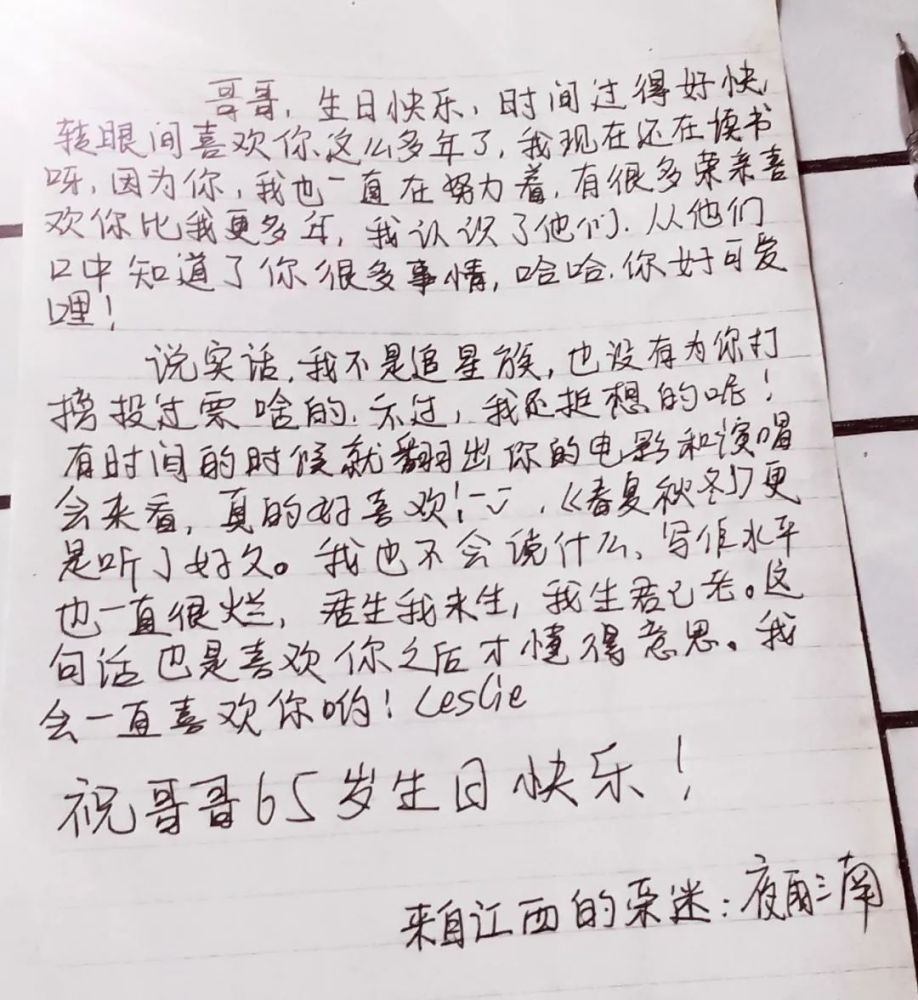 哥哥，生日快乐，时间过得好快，
转眼间喜欢你这么多年了，我现在还在读书
呀，因为你，我也一直在努力着，有很多荣亲喜
欢你比我更多年，我认识了他们，从他们
口中知道了你很多事情，哈哈，你好可爱
哩！
说实话，我不是追星族，也没有为你打
榜投过票啥的，不过，我还挺想的呢！
有时间的时候就翻出你的电影和演唱
会来看，真的好喜欢！，《春夏秋冬》更
是听了好久。我也不会说什么，写作水平
也一直很烂，君生我未生，我生君已老。这
句话也是喜欢你之后才懂得意思。我
会一直喜欢你哟！Leslie
祝哥哥65岁生日快乐！
来自江西的荣迷：夜雨三南